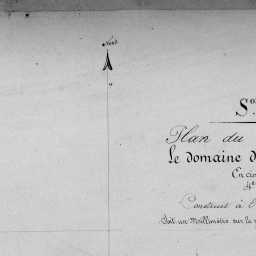 Nord
S
Plan du
Le domaine d
Construit à
Soit un Millimètre sur la